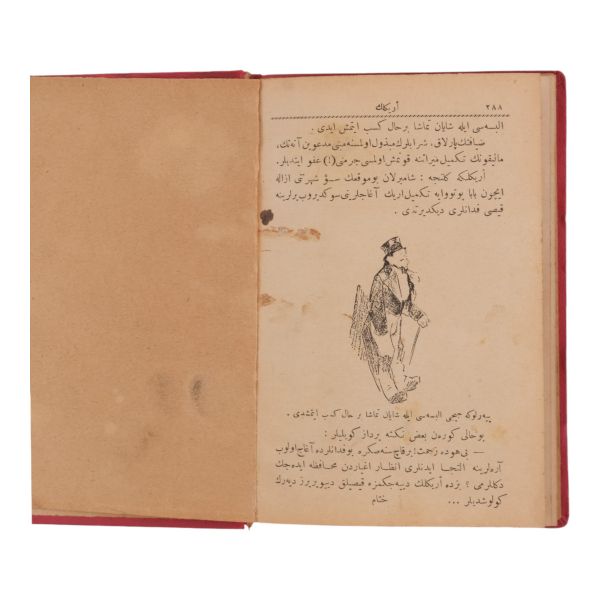 ٢٨٨ أريكلك
البسه‌سی ایله شایان تماشا بر حال کسب ایتمش ایدی .
ضیافتك پارلاق، شرابلرك مبذول اولمسنه مبنی مدعوین آنه‌تك،
مالیقوتك تکمیل میراثنه قونمش اولمسی جرمنی (!) عفو ایتدیلر.
أریکلکه کلنجه : شامبرلان بو موقعك سؤ شهرتی ازاله
ایچون پاپا یوتوویه تکمیل اریك آغاجلرینی سوکدیروب یرلرینه
قیصی فدانلری دیکدیرتدی .
پیه‌رلوکه جیجی البسه‌سی ایله شایان تماشا بر حال کسب ایتمشدی .
بو حالی کورن بعض نکته پرداز کویلیلر :
— بی‌هوده زحمت! بر قاچ سنه صکره بو فدانلرده آغاج اولوب
آره‌لرینه التجا ایدنلری انظار اغیاردن محافظه ایده‌جك
دکلمی ؟ بزده أریکلك دییه‌جکمزه قیصیلق دییویریرز دیه‌رك
کولوشدیلر ... ختام